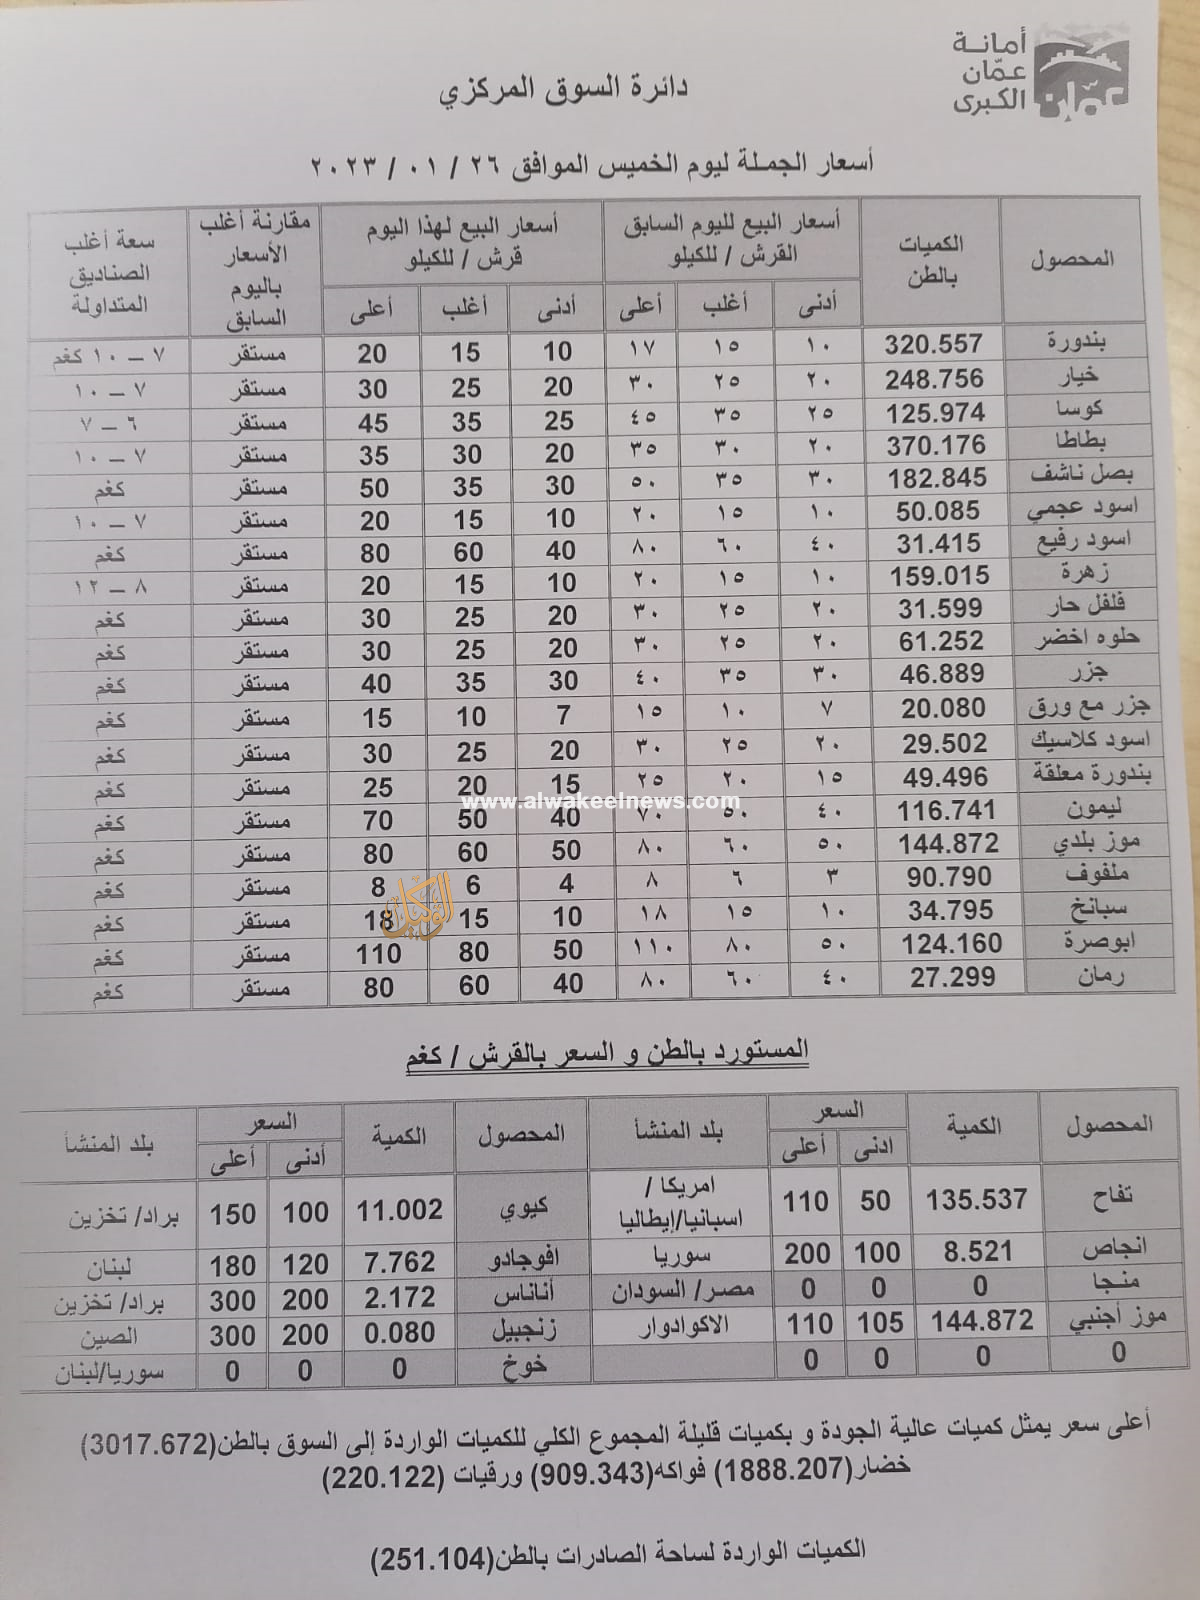 أمانة
عمّان
الكبرى
عمّان
دائرة السوق المركزي
أسعار الجملة ليوم الخميس الموافق ٢٦ / ٠١ / ٢٠٢٣
المحصول | الكميات بالطن | أسعار البيع لليوم السابق القرش / للكيلو | أسعار البيع لهذا اليوم قرش / للكيلو | مقارنة أغلب الأسعار باليوم السابق | سعة أغلب الصناديق المتداولة
أدنى | أغلب | أعلى | أدنى | أغلب | أعلى
بندورة | 320.557 | ١٠ | ١٥ | ١٧ | 10 | 15 | 20 | مستقر | ٧ – ١٠ كغم
خيار | 248.756 | ٢٠ | ٢٥ | ٣٠ | 20 | 25 | 30 | مستقر | ٧ – ١٠
كوسا | 125.974 | ٢٥ | ٣٥ | ٤٥ | 25 | 35 | 45 | مستقر | ٦ – ٧
بطاطا | 370.176 | ٢٠ | ٣٠ | ٣٥ | 20 | 30 | 35 | مستقر | ٧ – ١٠
بصل ناشف | 182.845 | ٣٠ | ٣٥ | ٥٠ | 30 | 35 | 50 | مستقر | كغم
اسود عجمي | 50.085 | ١٠ | ١٥ | ٢٠ | 10 | 15 | 20 | مستقر | ٧ – ١٠
اسود رفيع | 31.415 | ٤٠ | ٦٠ | ٨٠ | 40 | 60 | 80 | مستقر | كغم
زهرة | 159.015 | ١٠ | ١٥ | ٢٠ | 10 | 15 | 20 | مستقر | ٨ – ١٢
فلفل حار | 31.599 | ٢٠ | ٢٥ | ٣٠ | 20 | 25 | 30 | مستقر | كغم
حلوه اخضر | 61.252 | ٢٠ | ٢٥ | ٣٠ | 20 | 25 | 30 | مستقر | كغم
جزر | 46.889 | ٣٠ | ٣٥ | ٤٠ | 30 | 35 | 40 | مستقر | كغم
جزر مع ورق | 20.080 | ٧ | ١٠ | ١٥ | 7 | 10 | 15 | مستقر | كغم
اسود كلاسيك | 29.502 | ٢٠ | ٢٥ | ٣٠ | 20 | 25 | 30 | مستقر | كغم
بندورة معلقة | 49.496 | ١٥ | ٢٠ | ٢٥ | 15 | 20 | 25 | مستقر | كغم
www.alwakeelnews.com
ليمون | 116.741 | ٤٠ | ٥٠ | ٧٠ | 40 | 50 | 70 | مستقر | كغم
موز بلدي | 144.872 | ٥٠ | ٦٠ | ٨٠ | 50 | 60 | 80 | مستقر | كغم
ملفوف | 90.790 | ٣ | ٦ | ٨ | 4 | 6 | 8 | مستقر | كغم
الوكيل
سبانخ | 34.795 | ١٠ | ١٥ | ١٨ | 10 | 15 | 18 | مستقر | كغم
ابوصرة | 124.160 | ٥٠ | ٨٠ | ١١٠ | 50 | 80 | 110 | مستقر | كغم
رمان | 27.299 | ٤٠ | ٦٠ | ٨٠ | 40 | 60 | 80 | مستقر | كغم
المستورد بالطن و السعر بالقرش / كغم
المحصول | الكمية | السعر | بلد المنشأ | المحصول | الكمية | السعر | بلد المنشأ
ادنى | أعلى | أدنى | أعلى
تفاح | 135.537 | 50 | 110 | امريكا / اسبانيا/إيطاليا | كيوي | 11.002 | 100 | 150 | براد/ تخزين
انجاص | 8.521 | 100 | 200 | سوريا | افوجادو | 7.762 | 120 | 180 | لبنان
منجا | 0 | 0 | 0 | مصر/ السودان | أناناس | 2.172 | 200 | 300 | براد/ تخزين
موز أجنبي | 144.872 | 105 | 110 | الاكوادوار | زنجبيل | 0.080 | 200 | 300 | الصين
0 | 0 | 0 | 0 | خوخ | 0 | 0 | 0 | سوريا/لبنان
أعلى سعر يمثل كميات عالية الجودة و بكميات قليلة المجموع الكلي للكميات الواردة إلى السوق بالطن(3017.672)
خضار(1888.207) فواكه(909.343) ورقيات (220.122)
الكميات الواردة لساحة الصادرات بالطن(251.104)